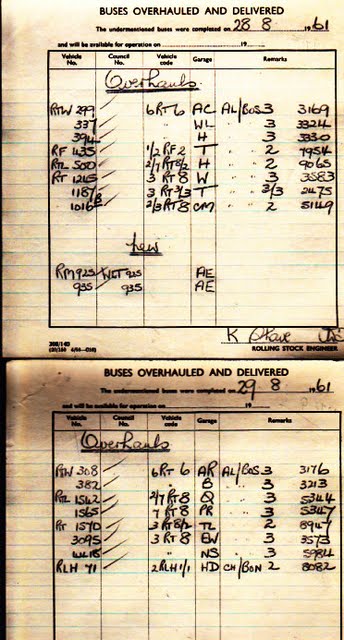 BUSES OVERHAULED AND DELIVERED
The undermentioned buses were completed on 28 8 1961
and will be available for operation on 19
Vehicle No. Council No. Vehicle code Garage Remarks
Overhauls
RTW 299 6RT6 AC AL/BOS 3 3169
337 " WL " " 3 3324
394 " H " " 3 3330
RF 435 1/2 RF2 T " " 2 7954
RTL 500 2/7 RT8/2 H " " 2 9065
RT 1245 3 RT8 W " " 3 3583
1187 3 RT3/3 T " " 3/3 2475
1016 2/3 RT8 CM " " 2 5149
New
RM 925 WLT 925 AE
935 935 AE
ROLLING STOCK ENGINEER
BUSES OVERHAULED AND DELIVERED
The undermentioned buses were completed on 29 8 1961
and will be available for operation on 19
Vehicle No. Council No. Vehicle code Garage Remarks
Overhauls
RTW 308 6RT6 AR AL/BOS 3 3176
382 " B " " 3 3213
RTL 1542 2/7 RT8 Q " " 3 5344
1565 7 RT8 PR " " 3 5347
RT 1570 3 RT8/2 TL " " 2 8947
3095 3 RT8 EW " " 3 3573
4418 " NS " " 3 5984
RLH 71 2RLH1/1 HD CH/BON 2 8082